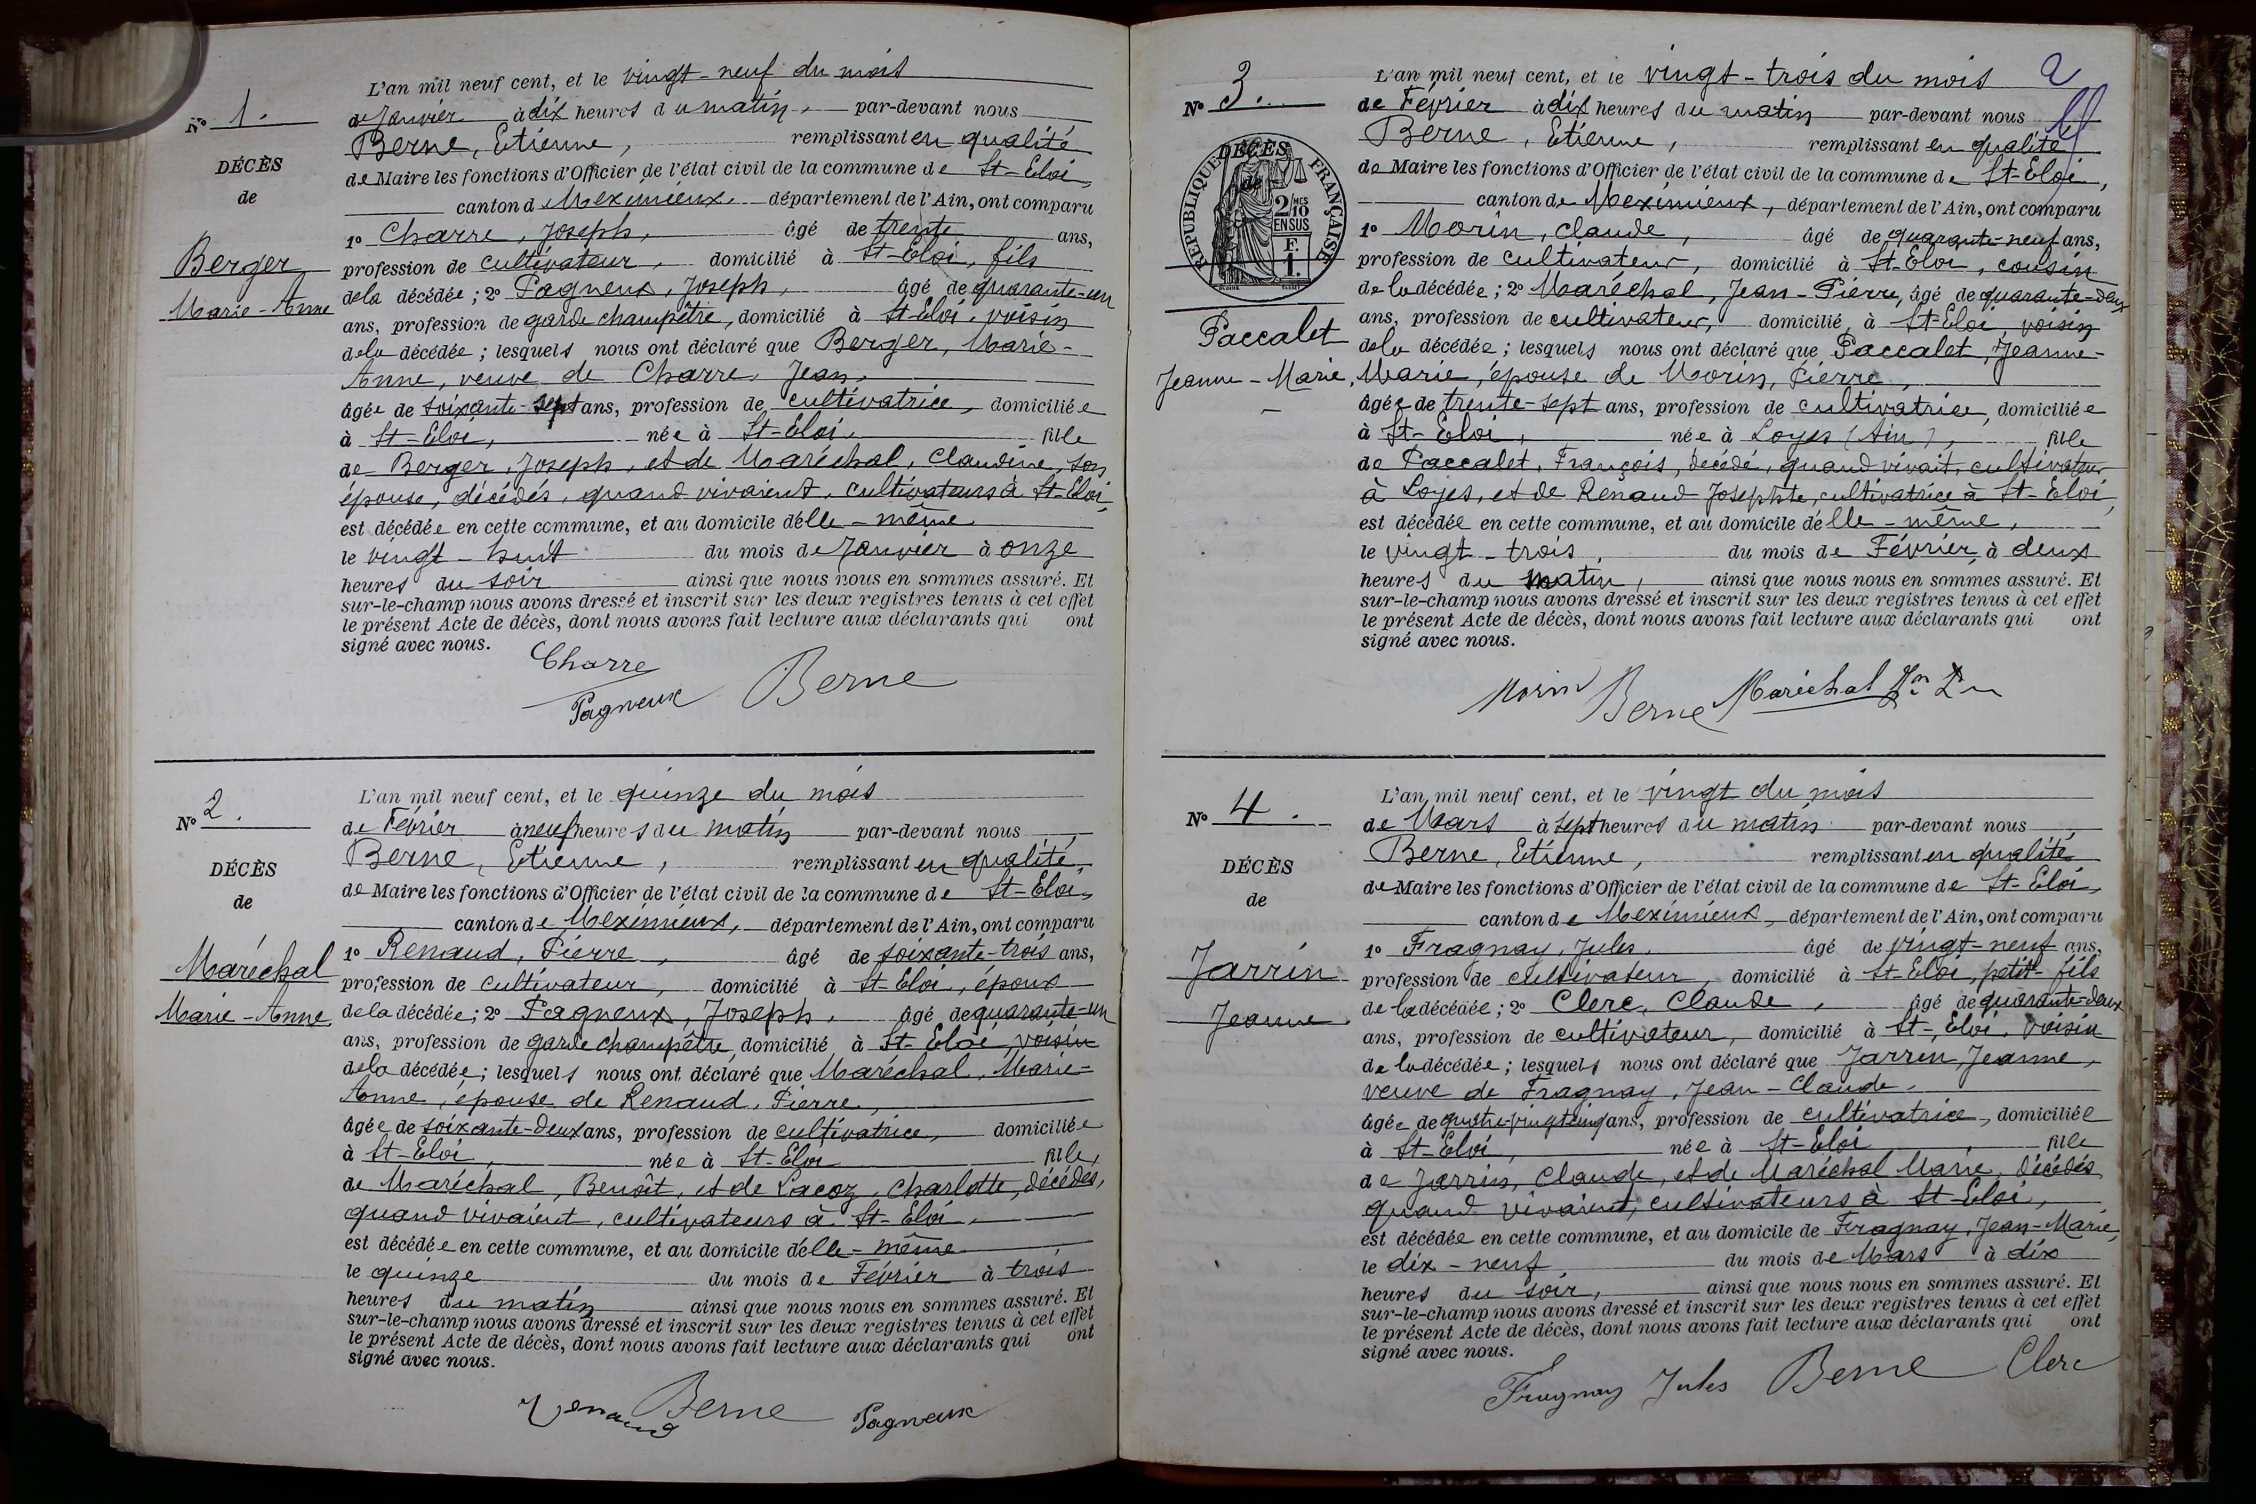 L'an mil neuf cent, et le vingt-neuf du mois
No 1. de Janvier à dix heures du matin, par-devant nous
Berne, Etienne, remplissant en qualité
DÉCÈS
de Maire les fonctions d'Officier de l'état civil de la commune de St-Eloi,
de
canton de Meximieux, département de l'Ain, ont comparu
1o Charre, Joseph, âgé de trente ans,
Berger
profession de cultivateur, domicilié à St-Eloi, fils
Marie-Anne
de la décédée; 2o Pagneux, Joseph, âgé de quarante-un
ans, profession de garde champêtre, domicilié à St-Eloi, voisin
de la décédée; lesquels nous ont déclaré que Berger, Marie-
Anne, veuve de Charre, Jean,
âgée de soixante-sept ans, profession de cultivatrice, domiciliée
à St-Eloi, née à St-Eloi, fille
de Berger, Joseph, et de Maréchal, Claudine, son
épouse, décédés, quand vivaient, cultivateurs à St-Eloi,
est décédée en cette commune, et au domicile d'elle-même
le vingt-huit du mois de Janvier à onze
heures du soir ainsi que nous nous en sommes assuré. Et
sur-le-champ nous avons dressé et inscrit sur les deux registres tenus à cet effet
le présent Acte de décès, dont nous avons fait lecture aux déclarants qui ont
signé avec nous.
Charre
Pagneux Berne
L'an mil neuf cent, et le quinze du mois
No 2. de Février à neuf heures du matin par-devant nous
Berne, Etienne, remplissant en qualité
DÉCÈS
de Maire les fonctions d'Officier de l'état civil de la commune de St-Eloi,
de
canton de Meximieux, département de l'Ain, ont comparu
1o Renaud, Pierre, âgé de soixante-trois ans,
Maréchal
profession de cultivateur, domicilié à St-Eloi, époux
Marie-Anne,
de la décédée; 2o Pagneux, Joseph, âgé de quarante-un
ans, profession de garde champêtre, domicilié à St-Eloi, voisin
de la décédée; lesquels nous ont déclaré que Maréchal, Marie-
Anne, épouse de Renaud, Pierre,
âgée de soixante-deux ans, profession de cultivatrice, domiciliée
à St-Eloi, née à St-Eloi fille,
de Maréchal, Benoît, et de Lacoz, Charlotte, décédés,
quand vivaient, cultivateurs à St-Eloi,
est décédée en cette commune, et au domicile d'elle-même
le quinze du mois de Février à trois
heures du matin ainsi que nous nous en sommes assuré. Et
sur-le-champ nous avons dressé et inscrit sur les deux registres tenus à cet effet
le présent Acte de décès, dont nous avons fait lecture aux déclarants qui ont
signé avec nous.
Renaud Berne Pagneux
2
L'an mil neuf cent, et le vingt-trois du mois
No 3. de Février à dix heures du matin par-devant nous
Berne, Etienne, remplissant en qualité
DÉCÈS
de
RÉPUBLIQUE FRANÇAISE
2/10 MES
EN SUS
F.
1.
de Maire les fonctions d'Officier de l'état civil de la commune de St-Eloi,
canton de Meximieux, département de l'Ain, ont comparu
1o Morin, Claude, âgé de quarante-neuf ans,
profession de cultivateur, domicilié à St-Eloi, cousin
de la décédée; 2o Maréchal, Jean-Pierre, âgé de quarante-deux
ans, profession de cultivateur, domicilié à St-Eloi, voisin
Paccalet
de la décédée; lesquels nous ont déclaré que Paccalet, Jeanne-
Jeanne-Marie,
Marie, épouse de Morin, Pierre,
âgée de trente-sept ans, profession de cultivatrice, domiciliée
à St-Eloi, née à Loyes (Ain), fille
de Paccalet, François, décédé, quand vivait, cultivateur
à Loyes, et de Renaud Josephte, cultivatrice à St-Eloi,
est décédée en cette commune, et au domicile d'elle-même,
le vingt-trois, du mois de Février, à deux
heures du matin, ainsi que nous nous en sommes assuré. Et
sur-le-champ nous avons dressé et inscrit sur les deux registres tenus à cet effet
le présent Acte de décès, dont nous avons fait lecture aux déclarants qui ont
signé avec nous.
Morin Berne Maréchal
L'an mil neuf cent, et le vingt du mois
No 4. de Mars à sept heures du matin par-devant nous
Berne, Etienne, remplissant en qualité
DÉCÈS
de Maire les fonctions d'Officier de l'état civil de la commune de St-Eloi,
de
canton de Meximieux, département de l'Ain, ont comparu
1o Fragnay, Jules, âgé de vingt-neuf ans,
Jarrin
profession de cultivateur, domicilié à St-Eloi, petit-fils
de la décédée; 2o Clerc, Claude, âgé de quarante-deux
Jeanne.
ans, profession de cultivateur, domicilié à St-Eloi, voisin
de la décédée; lesquels nous ont déclaré que Jarrin, Jeanne,
veuve de Fragnay, Jean-Claude,
âgée de quatre-vingt cinq ans, profession de cultivatrice, domiciliée
à St-Eloi, née à St-Eloi, fille
de Jarrin, Claude, et de Maréchal Marie, décédés
quand vivaient, cultivateurs à St-Eloi,
est décédée en cette commune, et au domicile de Fragnay, Jean-Marie,
le dix-neuf du mois de Mars à dix
heures du soir, ainsi que nous nous en sommes assuré. Et
sur-le-champ nous avons dressé et inscrit sur les deux registres tenus à cet effet
le présent Acte de décès, dont nous avons fait lecture aux déclarants qui ont
signé avec nous.
Fragnay Jules Berne Clerc